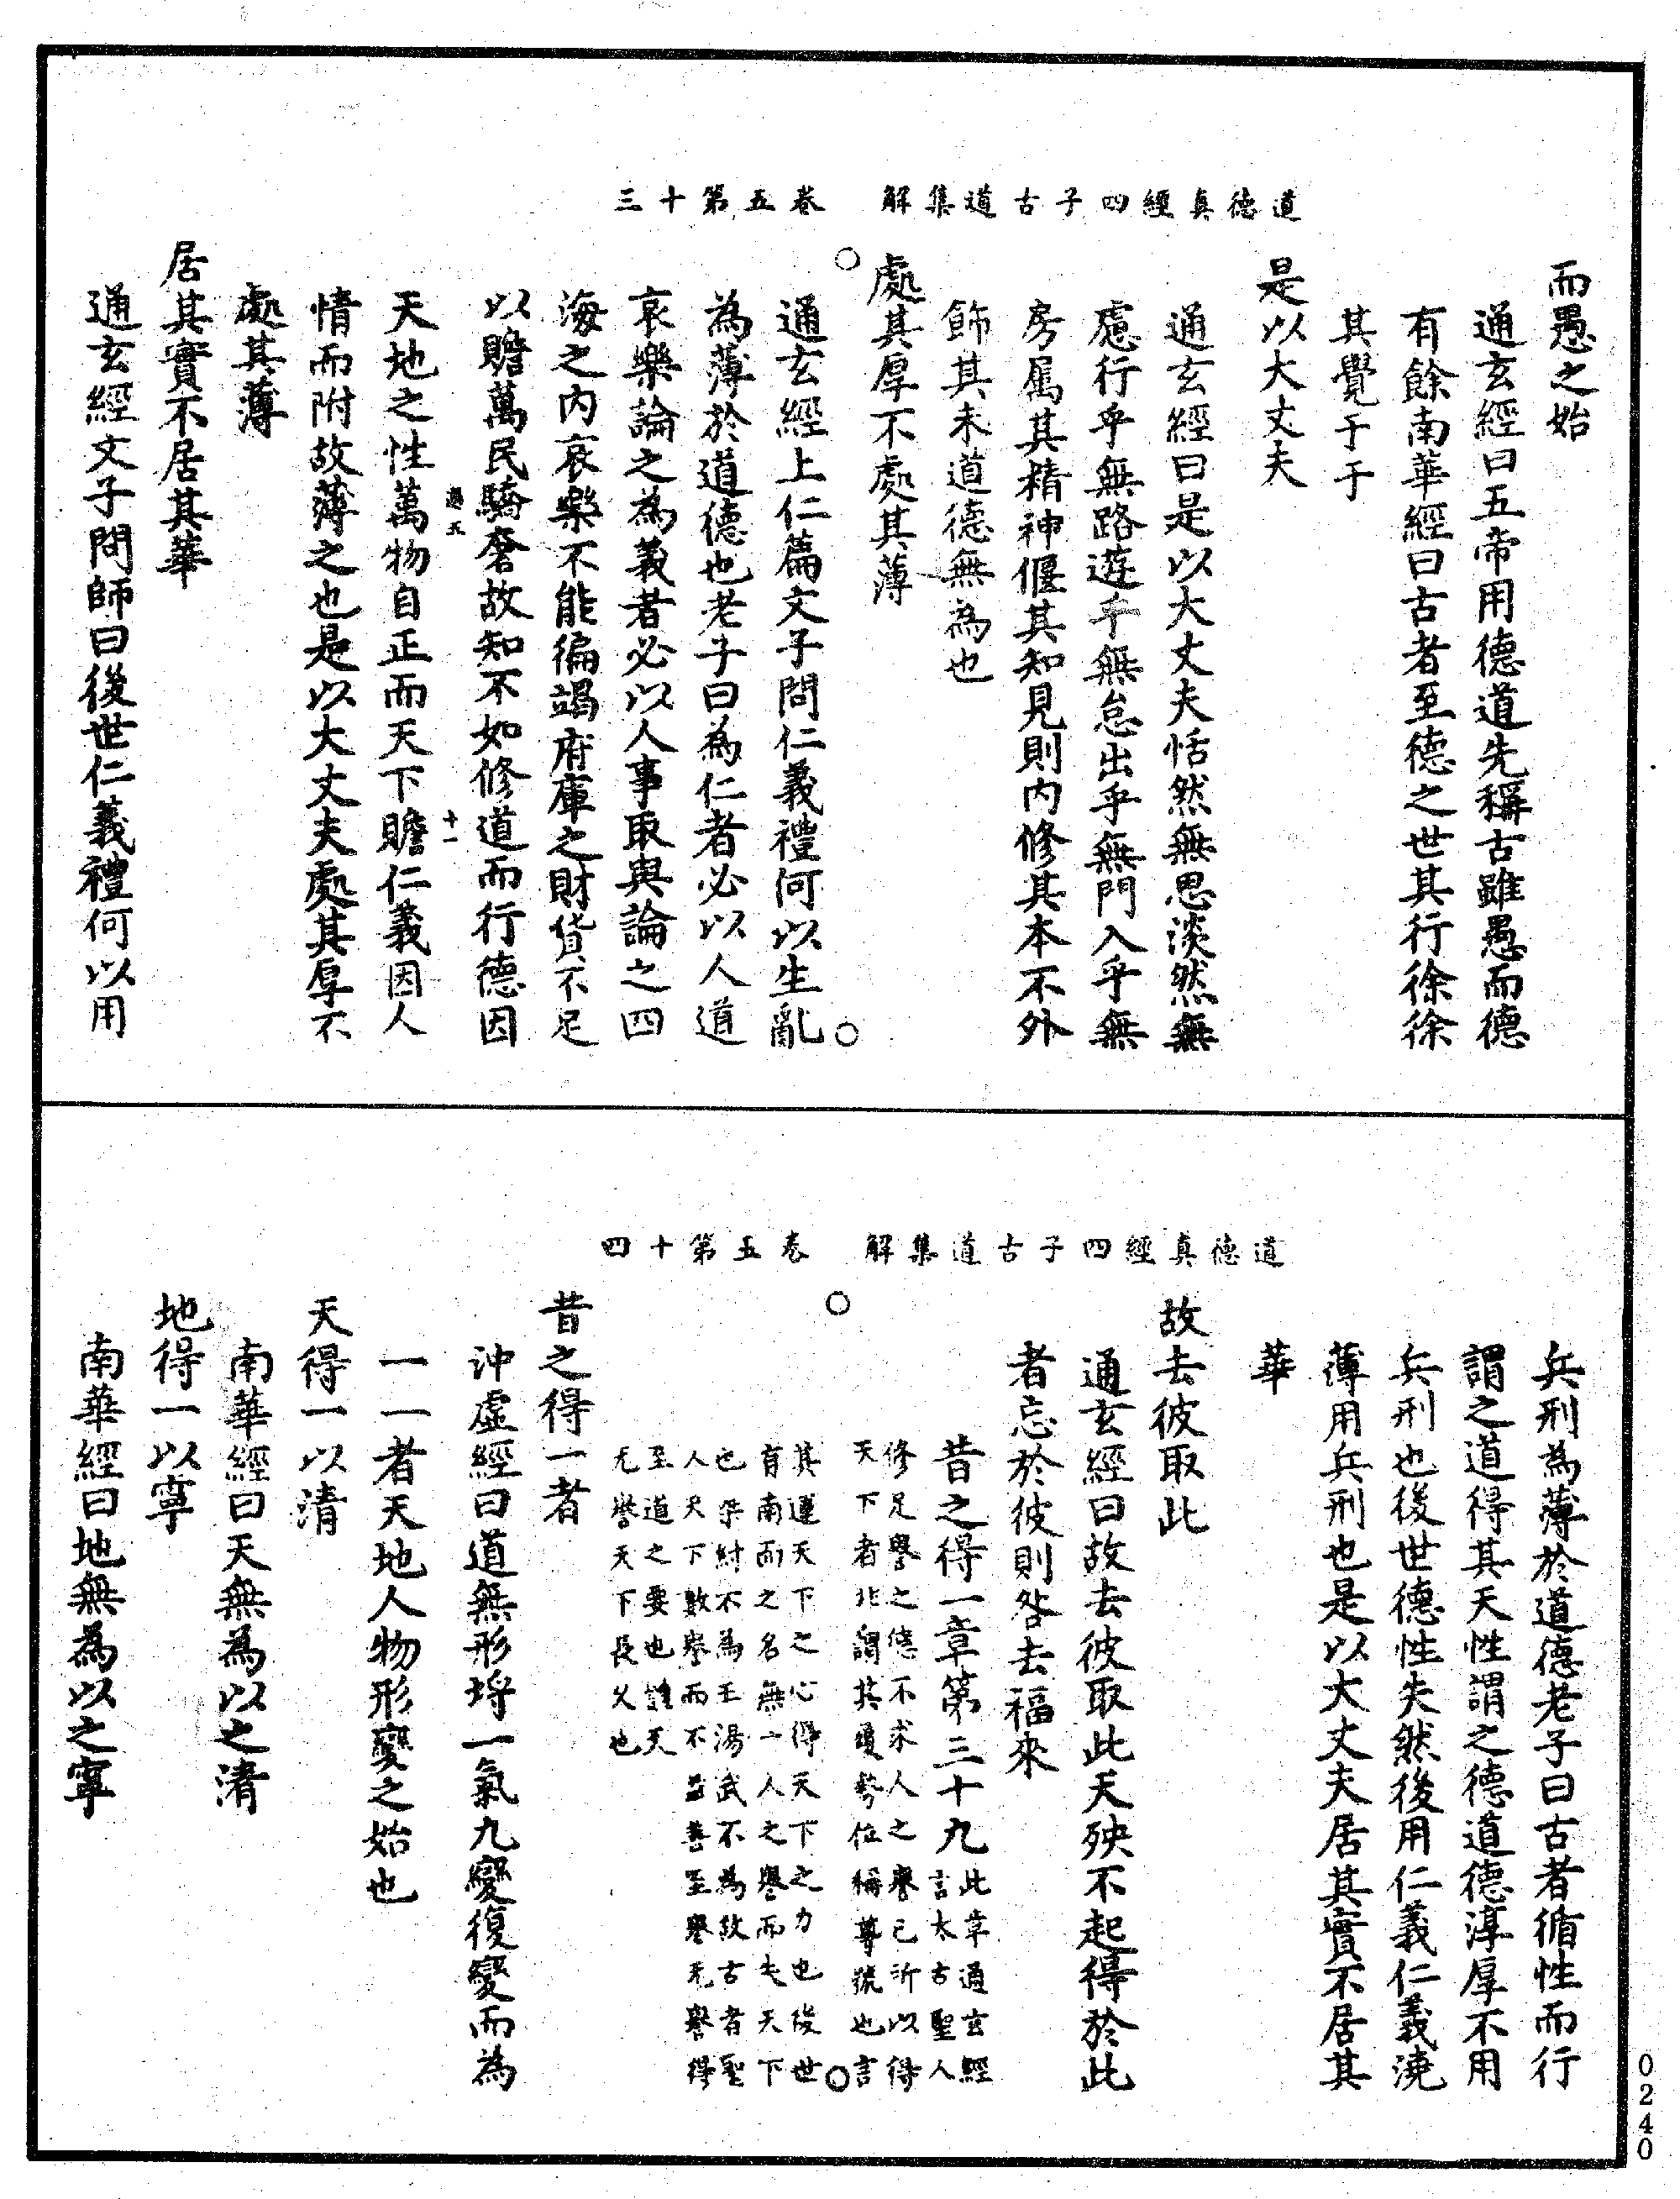 道德真經四子古道集解　卷五第十三
而愚之始
通玄經曰五帝用德道先稱古雖愚而德
有餘南華經曰古者至德之世其行徐徐
其覺于于
是以大丈夫
通玄經曰是以大丈夫恬然無思淡然無
慮行乎無路遊乎無怠出乎無門入乎無
房屬其精神偃其知見則內修其本不外
飾其末道德無為也
處其厚不處其薄
通玄經上仁篇文子問仁義禮何以生亂
為薄於道德也老子曰為仁者必以人道
哀樂論之為義者必以人事取與論之四
海之內哀樂不能徧竭府庫之財貨不足
以贍萬民驕奢故知不如修道而行德因
天地之性萬物自正而天下贍仁義因人
情而附故薄之也是以大丈夫處其厚不
處其薄
居其實不居其華
通玄經文子問師曰後世仁義禮何以用
道德真經四子古道集解　卷五第十四
兵刑為薄於道德老子曰古者循性而行
謂之道得其天性謂之德道德淳厚不用
兵刑也後世德性失然後用仁義仁義澆
薄用兵刑也是以大丈夫居其實不居其
華
故去彼取此
通玄經曰故去彼取此天殃不起得於此
者忘於彼則咎去福來
昔之得一章第三十九此章通玄經言太古聖人
修足譽之德不求人之譽已所以得
天下者非謂其履勢位稱尊號也言
其運天下之心得天下之力也後世
有南面之名無一人之譽而失天下
也桀紂不為王湯武不為放古者聖
人天下數譽而不益善至譽无譽得
至道之要也雖天
无譽天下長久也
昔之得一者
沖虛經曰道無形埒一氣九變復變而為
一一者天地人物形變之始也
天得一以清
南華經曰天無為以之清
地得一以寧
南華經曰地無為以之寧
0240